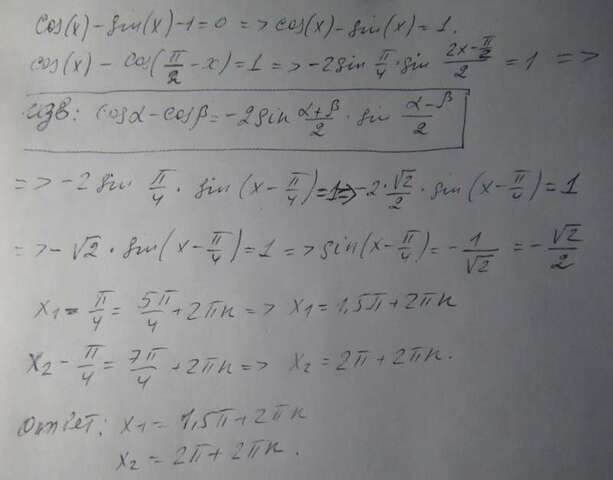 cos(x) - sin(x) - 1 = 0 => cos(x) - sin(x) = 1.
cos(x) - cos(π/2 - x) = 1 => -2 sin π/4 · sin (2x - π/2)/2 = 1 =>
Изв: cosα - cosβ = -2 sin (α+β)/2 · sin (α-β)/2
=> -2 sin π/4 · sin (x - π/4) = 1 => -2 · √2/2 · sin (x - π/4) = 1
=> -√2 · sin(x - π/4) = 1 => sin(x - π/4) = - 1/√2 = - √2/2
x1 - π/4 = 5π/4 + 2πn => x1 = 1,5π + 2πn
x2 - π/4 = 7π/4 + 2πn => x2 = 2π + 2πn.
Ответ: x1 = 1,5π + 2πn
x2 = 2π + 2πn.